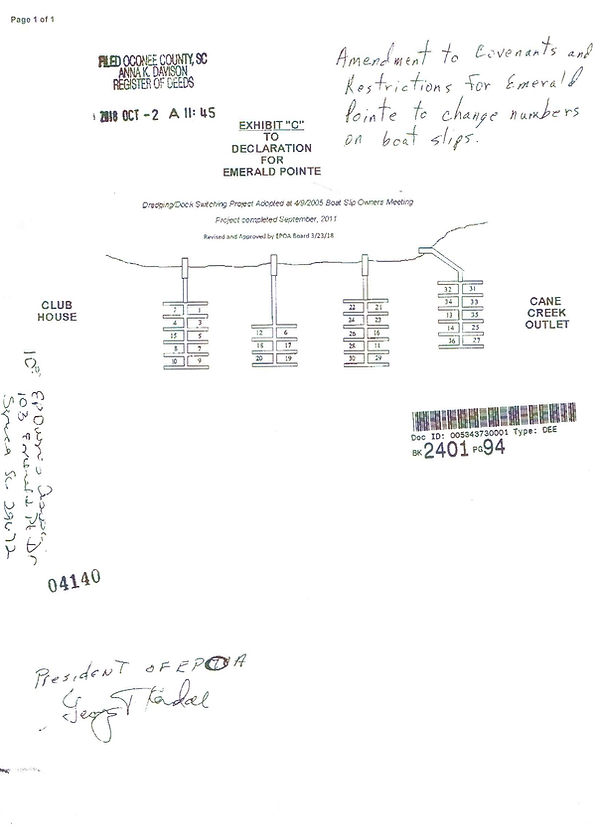 Page 1 of 1
FILED OCONEE COUNTY, SC
ANNA K. DAVISON
REGISTER OF DEEDS
2018 OCT -2 A 11: 45
Amendment to Covenants and
Restrictions for Emerald
Pointe to change numbers
on boat slips.
EXHIBIT "C"
TO
DECLARATION
FOR
EMERALD POINTE
Dredging/Dock Switching Project Adopted at 4/9/2005 Boat Slip Owners Meeting
Project completed September, 2011
Revised and Approved by EPOA Board 3/23/18
CLUB
HOUSE
1
4 3
15 5
8 7
10 9
12 6
18 17
20 19
22 21
24 23
26 16
28 11
30 29
32 31
34 33
13 35
14 25
36 27
CANE
CREEK
OUTLET
103 Emerald Pt Dr
Seneca SC 29672
Doc ID: 005343730001 Type: DEE
BK 2401 PG 94
04140
President of EPOA